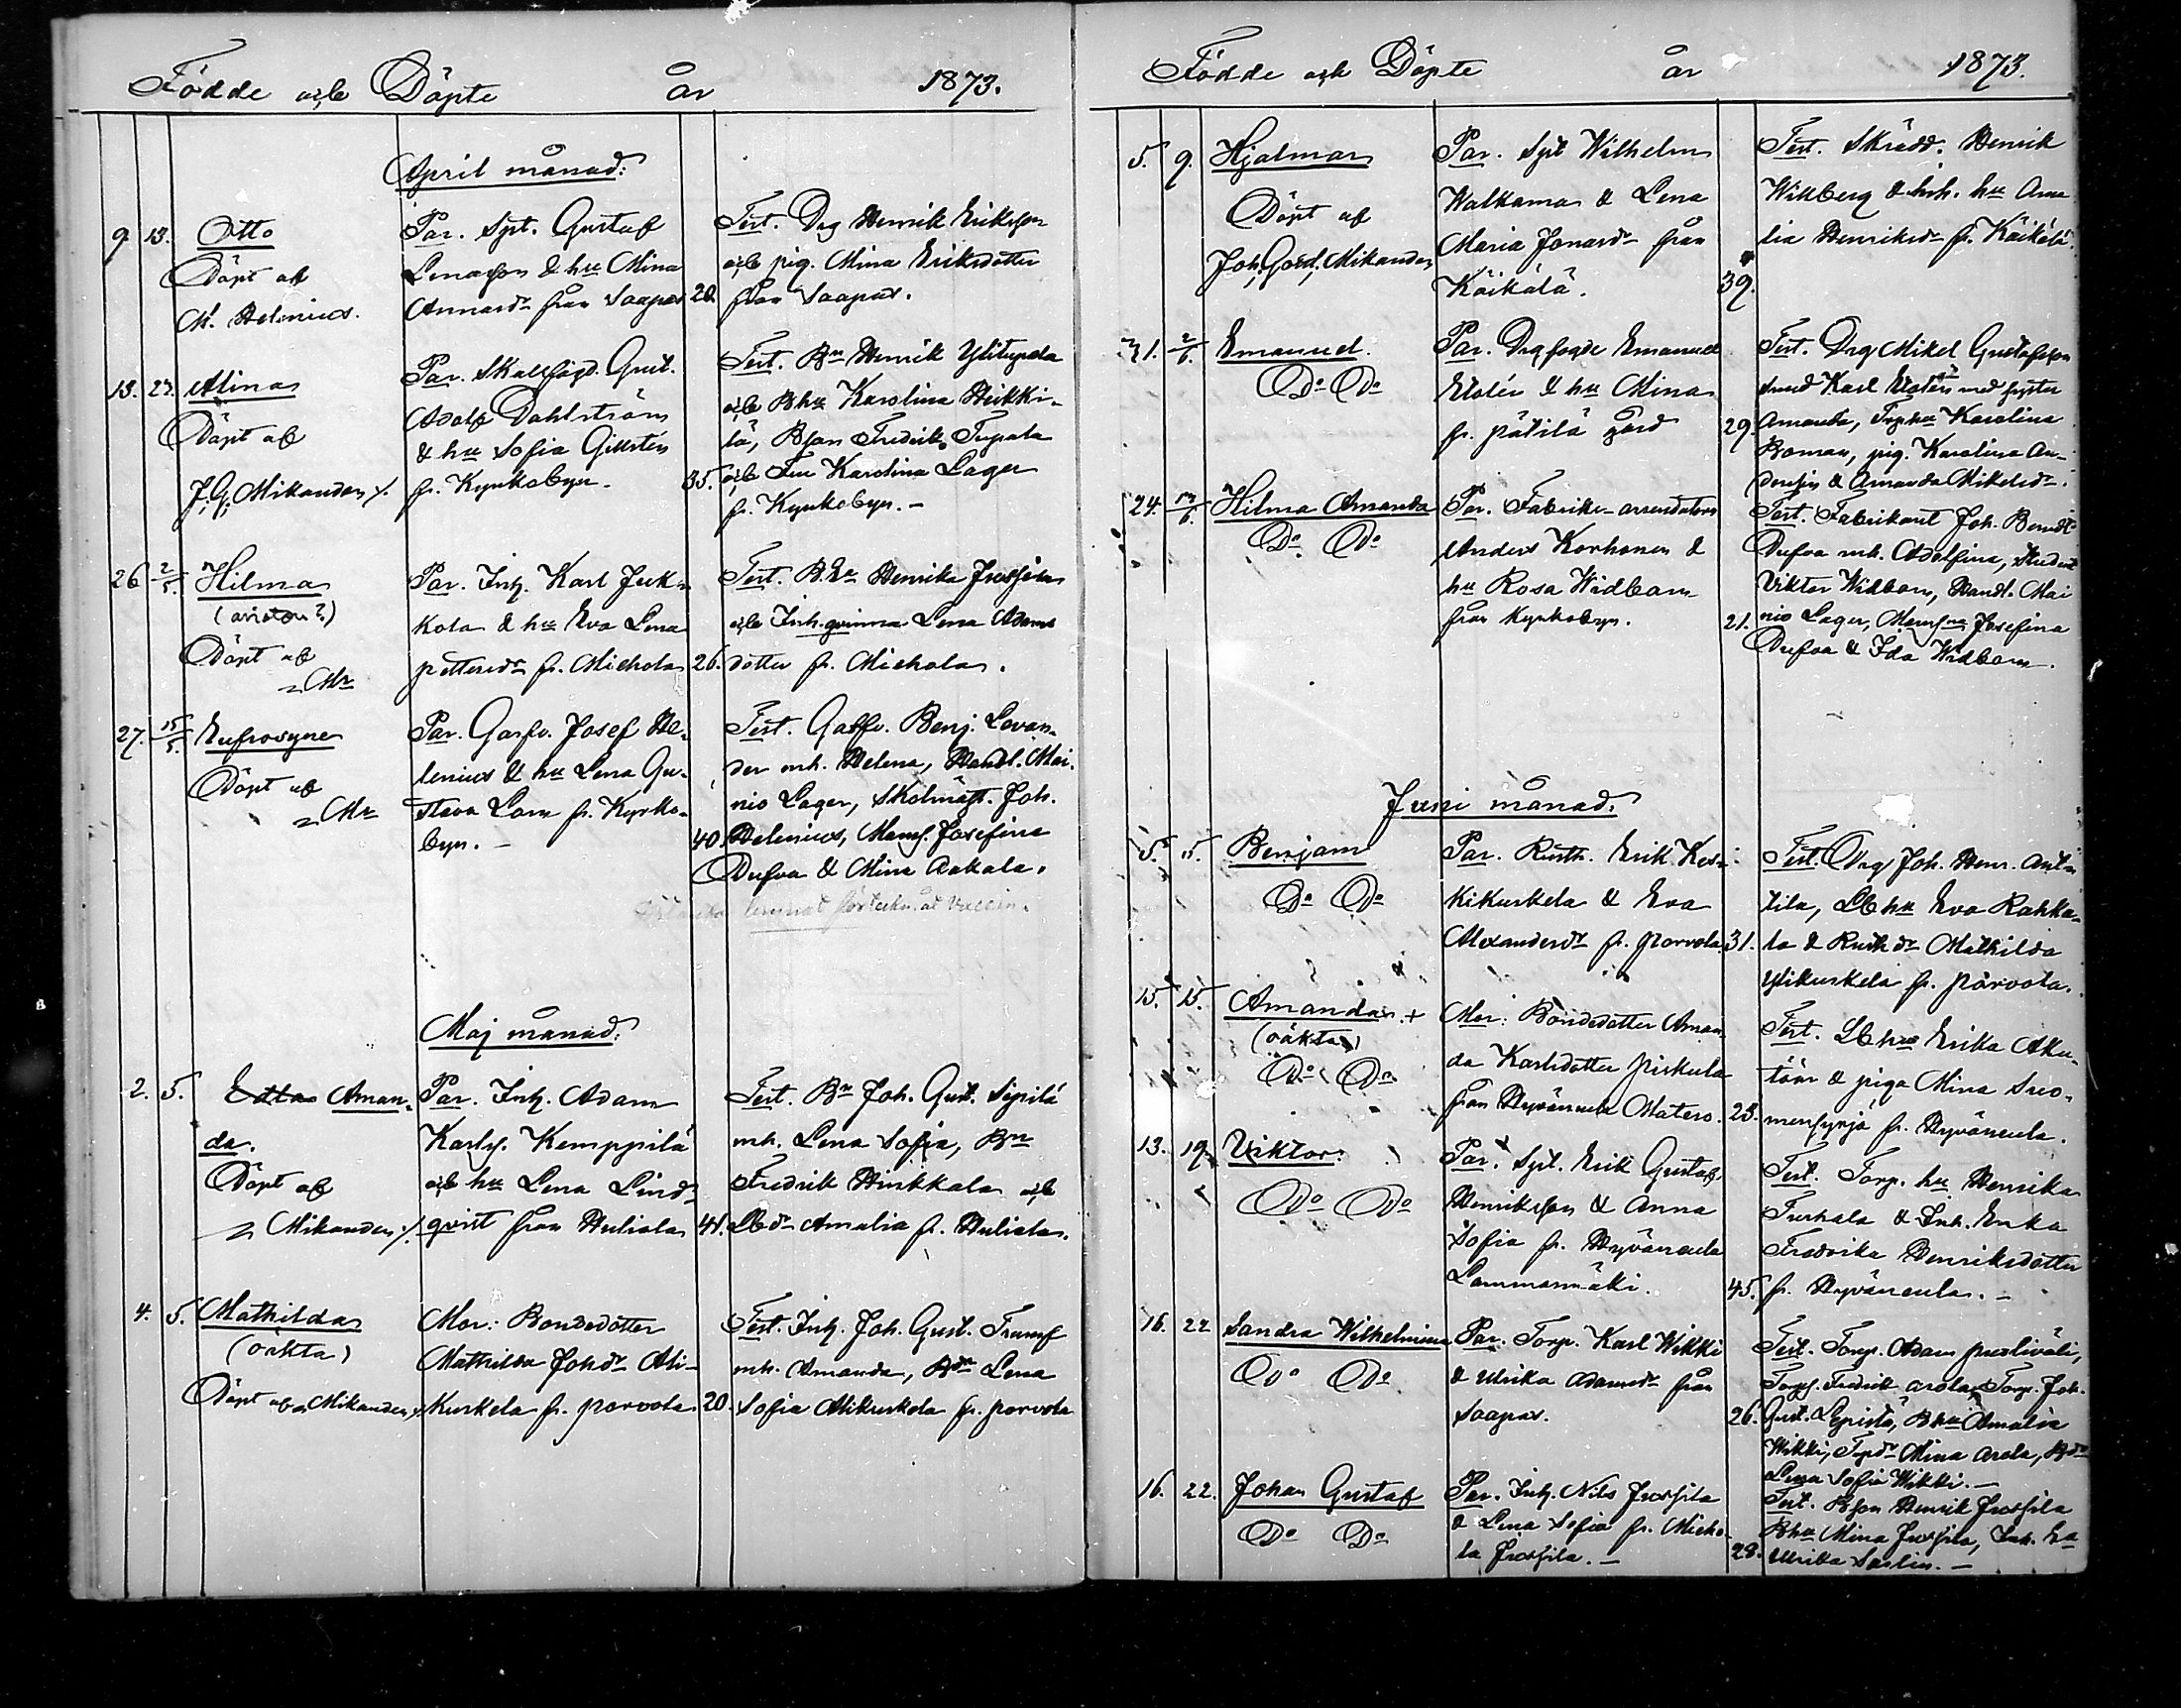 Födde och Döpte år 1873.
April månad:
9 13. Otto
Döpt af
M. Helenius.
Par. Spt. Gustaf
Lenason & hu Mina
Annasdr från Saapas
20.
Test. Drg Henrik Eriksson
och pig. Mina Eriksdotter
från Saapas.
13. 27. Alina
Döpt af
J. G. Mikander
Par. Skallfogd. Gust.
Adolf Dahlström
& hu Sofia
fr. Kyrkobyn.
35.
Test. Bn Henrik Ylitupala
och Bhu Karolina Heikki-
lä, Bson Fredrik Tupala
och Karolina Lager
fr. Kyrkobyn. -
26 2/5. Hilma
Döpt af
Mr
Par. Inh. Karl Juk-
kola & hu Eva Lena
Pettersdr fr. Michola
26.
Test. B. Ea Henrika Jussila
och Inh. qvinna Lena Adams
dotter fr. Michola.
27. 15/5. Eufrosyne
Döpt af
Mr
Par. Garfv. Josef He-
lenius & hu Lena Gu-
stava Lorn fr. Kyrko-
byn. -
40.
Test. Garfv. Benj. Levan-
der mh. Helena, Handl. Mai-
nio Lager, Skolmäst. Joh.
Helenius, Mams. Josefina
Dufva & Mina Aakala.
Maj månad:
2. 5. Edla Aman-
da.
Döpt af
Mikander
Par. Inh. Adam
Karls. Kemppilä
och hu Lena Lind-
qvist från Huliala
41.
Test. Bn Joh. Gust. Sipilä
mh. Lena Sofia, Bn
Fredrik Hinkkala och
Bdr Amalia fr. Huliala.
4. 5. Mathilda
(oäkta)
Döpt af Mikander
Mor: Bondedotter
Mathilda Johdr Ali-
Kurkela fr. Porvola
20.
Test. Inh. Joh. Gust. Trumf
mh. Amanda, Bdr Lena
Sofia Alikurkela fr. Porvola
Födde och Döpte år 1873.
5. 9. Hjalmar
Döpt af
Joh. Gord. Mikander
Par. Spt Wilhelm
Walkama & Lena
Maria Jonasdr från
Käikälä.
39.
Test. Skrädd. Henrik
Wikberg & hsh. hu Ama
lia Henriksdr fr. Käikälä.
31. 2/6. Emanuel.
Do Do
Par. Drgfogde Emanuel
& hu Mina
fr. Pätilä gård
29.
Test. Drg Mikel Gustafsson
Smed Karl med syster
Amanda, Trphu Karolina
Boman, pig. Karolina An-
dersin & Amanda Mikelsdr.
24. Hilma Amanda
Do Do
Par. Fabriks-arrendatorn
Anders Korhonen &
hu Rosa Widbom
från Kyrkobyn.
21.
Test. Fabrikant Joh. Berndt
Dufva mh. Adolfina, Student
Viktor Widbom, Handl. Mai
nio Lager, Mams. Josefina
Dufva & Ida Widbom.
Juni månad:
5. 15. Benjam
Do Do
Par. Rusth. Erik Kes-
kikurkela & Eva
Alexandersdr fr. Porvola
31.
Test. Drg Joh. Henr. Ant-
tila, Lbhu Eva Rahka-
la & Rusthdr Mathilda
Ylikurkela fr. Porvola.
15. 15. Amanda. +
(oäkta)
Do Do
Mor: Bondedotter Aman
da Karlsdotter Piskula
från Hyvänuela Matero.
23.
Test. Lbhu Erika
& piga Mina Suo-
fr. Hyvänuela.
13. 19. Viktor.
Do Do
Par. Spt. Erik Gustaf
Henriksson & Anna
Sofia fr. Hyvänuela
Lammasmäki.
45.
Test. Torp. hu Henrika
Turhala & Inh. Enka
Fredrika Henriksdotter
fr. Hyvänuela. -
16. 22 Sandra Wilhelmina
Do Do
Par. Torp. Karl Wikki
& Ulrika Adamsdr från
Saapas.
26.
Test. Torp. Adam
Torps. Fredrik Arola, Torp. Joh.
Gust. Lepistö, Bhu Amalia
Wikki, Trpdr Mina Arola, Bdr
Lena Sofia Wikki. -
16. 22. Johan Gustaf
Do Do
Par. Inh. Nils Jussila
& Lena Sofia fr. Micho-
la Jussila. -
28.
Test. Bson Henrik Jussila
Bhu Mina Jussila, Inh. Ea
Ulrika Saslin. -